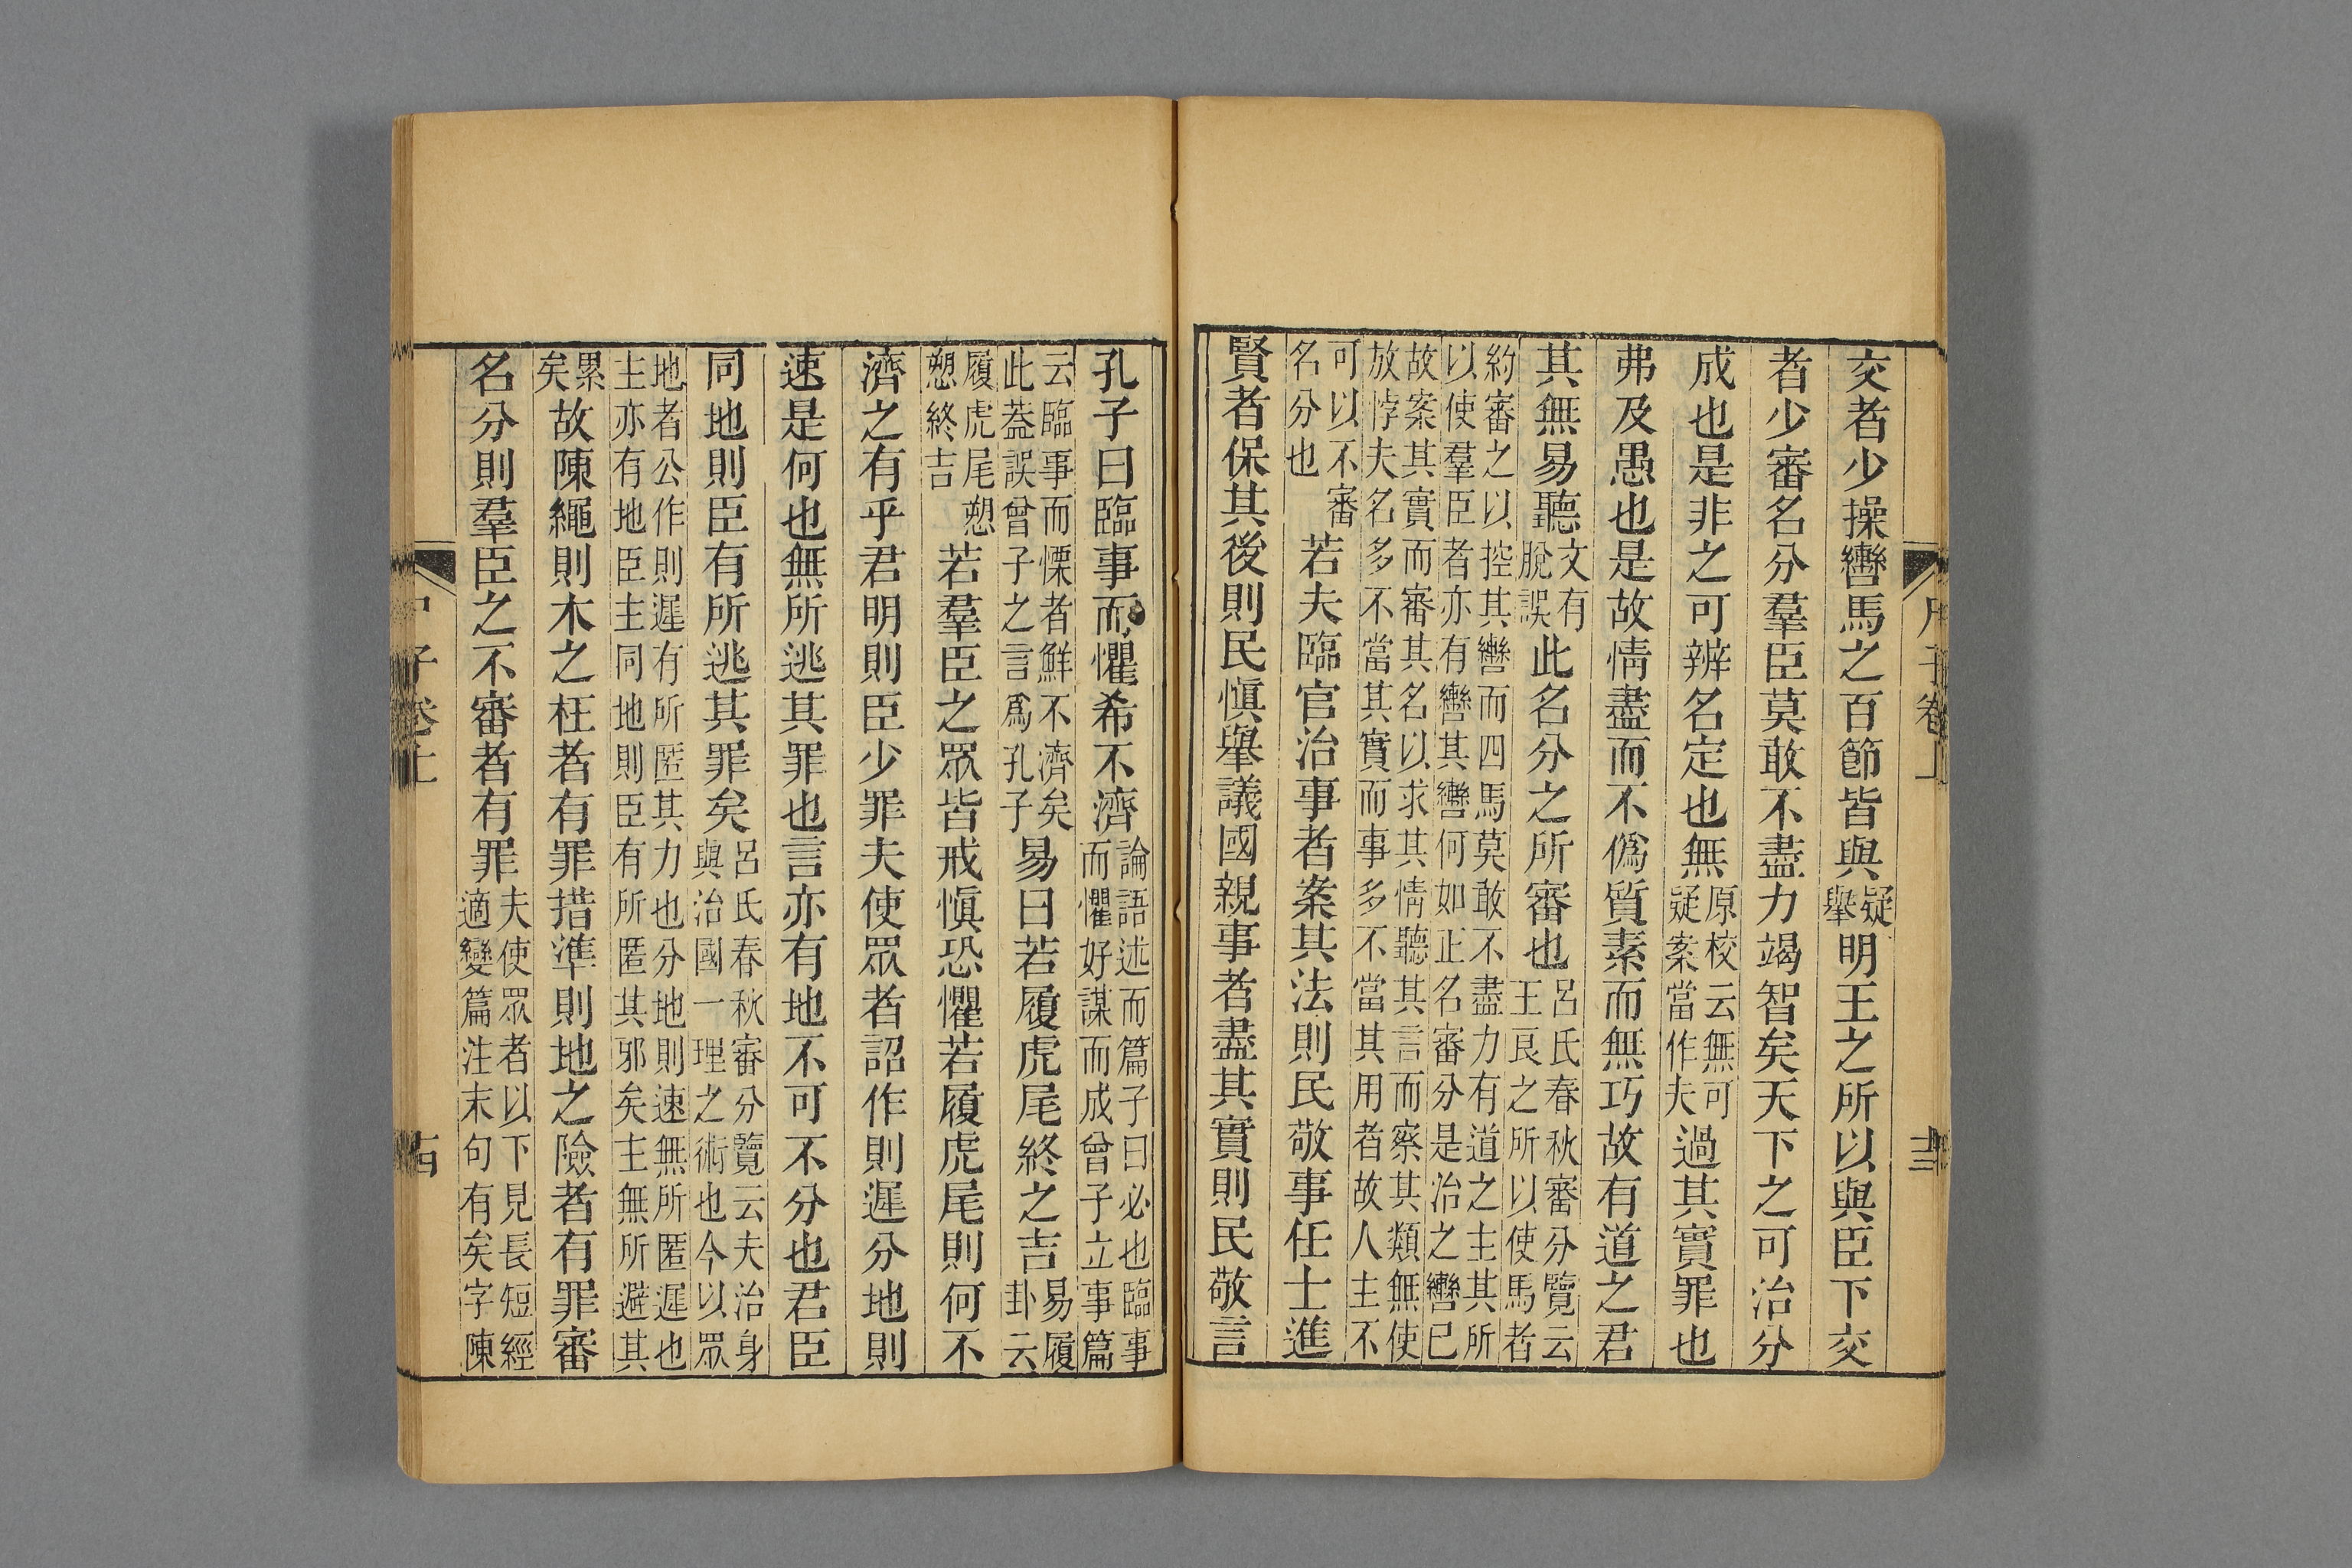 交者少操轡馬之百節皆與疑舉明王之所以與臣下交
者少審名分羣臣莫敢不盡力竭智矣天下之可治分
成也是非之可辨名定也無原校云無可疑案當作夫過其實罪也
弗及愚也是故情盡而不僞質素而無巧故有道之君
其無易聽文有脫誤此名分之所審也呂氏春秋審分覽云王良之所以使馬者
約審之以控其轡而四馬莫敢不盡力有道之主其所以使羣臣者亦有轡其轡何如正名審分是治之轡已
故案其實而審其名以求其情聽其言而察其類無使放悖夫名多不當其實而事多不當其用者故人主不
可以不審名分也若夫臨官治事者案其法則民敬事任士進
賢者保其後則民愼舉議國親事者盡其實則民敬言
孔子曰臨事而懼希不濟論語述而篇子曰必也臨事而懼好謀而成曾子立事篇
云臨事而慄者鮮不濟矣此葢誤曾子之言爲孔子易曰若履虎尾終之吉易履卦云
履虎尾愬愬終吉若羣臣之眾皆戒愼恐懼若履虎尾則何不
濟之有乎君明則臣少罪夫使眾者詔作則遲分地則
速是何也無所逃其罪也言亦有地不可不分也君臣
同地則臣有所逃其罪矣呂氏春秋審分覽云夫治身與治國一理之術也今以眾
地者公作則遲有所匿其力也分地則速無所匿遲也主亦有地臣主同地則臣有所匿其邪矣主無所避其
累矣故陳繩則木之枉者有罪措準則地之險者有罪審
名分則羣臣之不審者有罪夫使眾者以下見長短經適變篇注末句有矣字陳
子卷上
十四
子卷上
十三